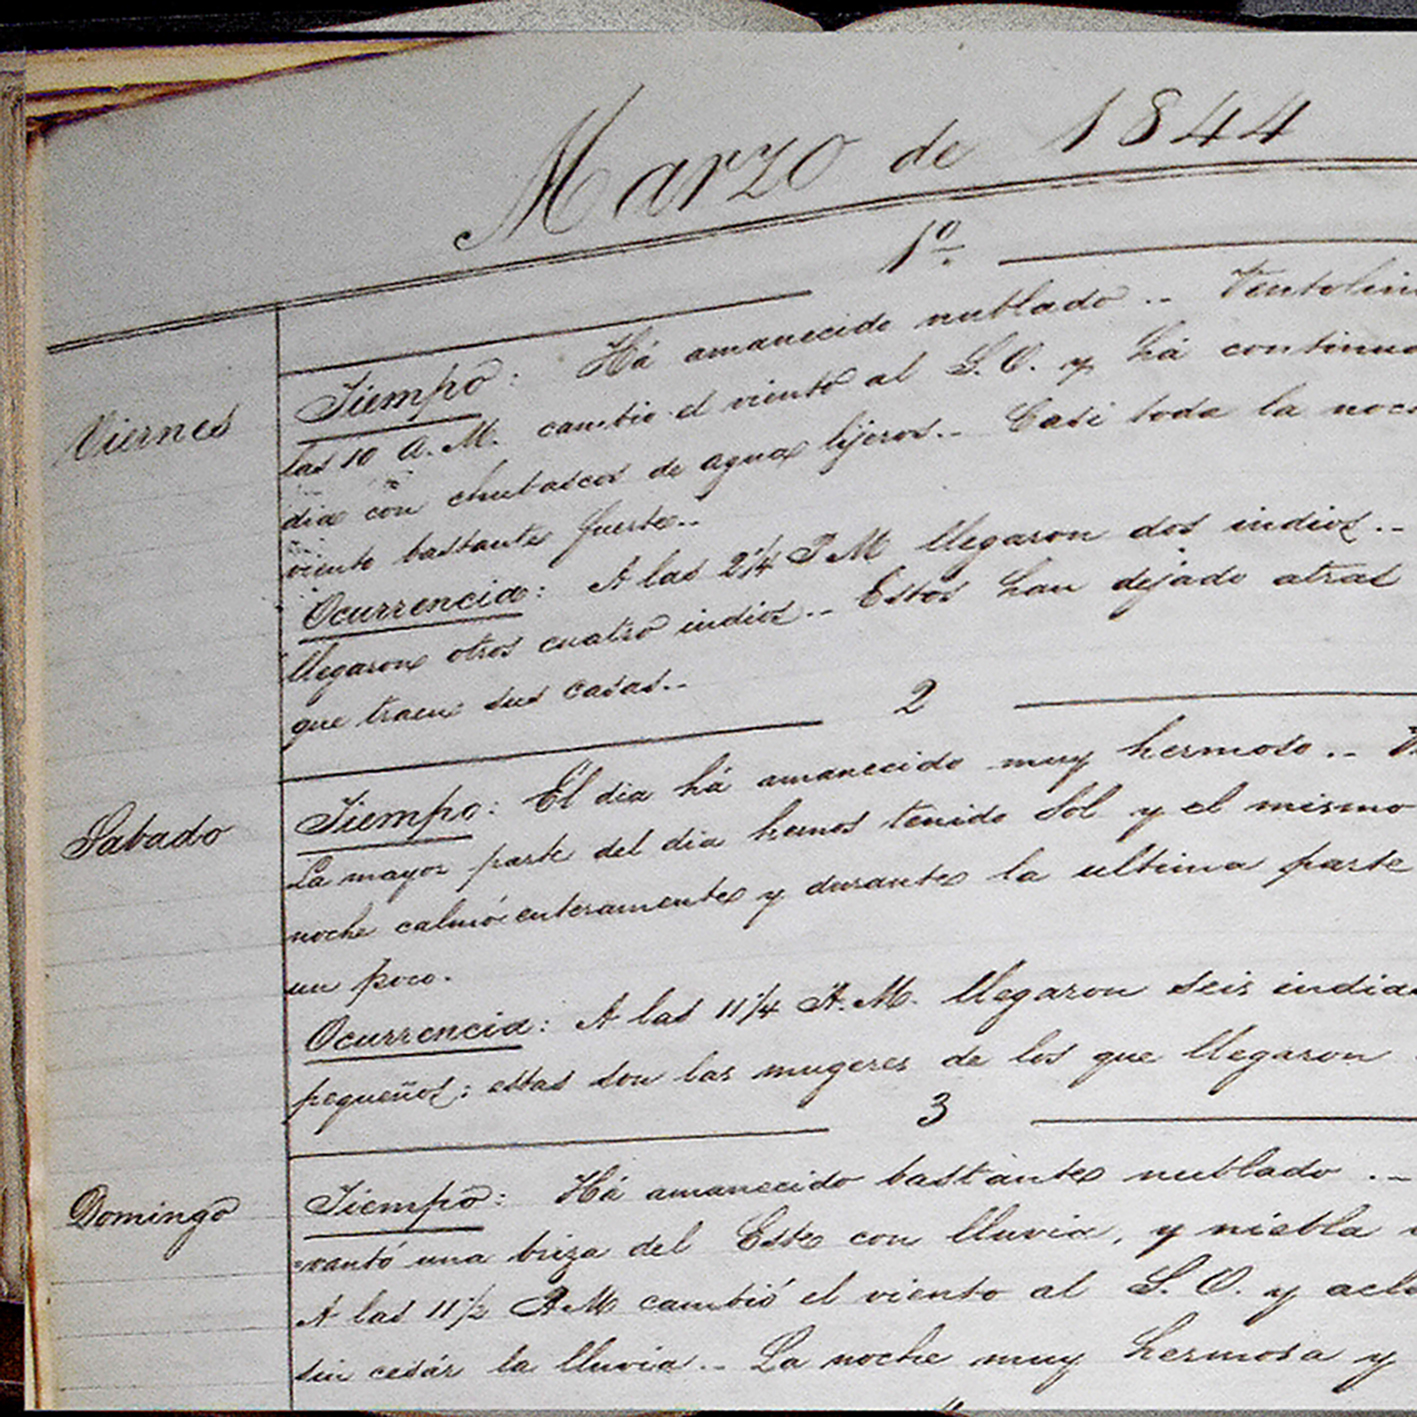 Marzo de 1844
1º
Viernes
Tiempo: Há amanecido nublado.. Ventolin
las 10 A.M. cambio el viento al S.O. y há continua
dia con chubascos de agua lijeros.. Casi toda la noc
viento bastante fuerte..
Ocurrencia: A las 2¼ P M llegaron dos indios..
llegaron otros cuatro indios.. Estos han dejado atras
que traen sus casas..
2
Sabado
Tiempo: El dia há amanecido muy hermoso..
La mayor parte del dia hemos tenido Sol y el mismo
noche calmó enteramente y durante la ultima parte
un poco.
Ocurrencia: A las 11¼ A.M. llegaron seis indias
pequeños: estas son las mugeres de los que llegaron
3
Domingo
Tiempo: Há amanecido bastante nublado ..
vantó una briza del Este con lluvia, y niebla
A las 11½ A.M cambió el viento al S.O. y acla
sin cesár la lluvia.. La noche muy hermosa y